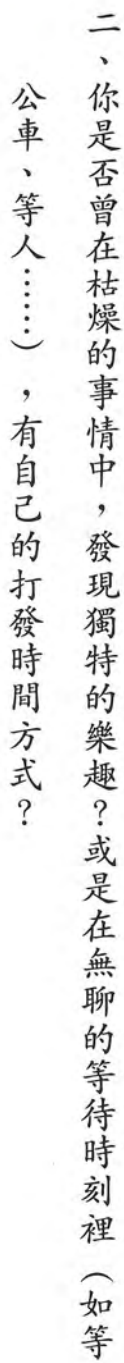 二、你是否曾在枯燥的事情中，發現獨特的樂趣？或是在無聊的等待時刻裡（如等
公車、等人……），有自己的打發時間方式？